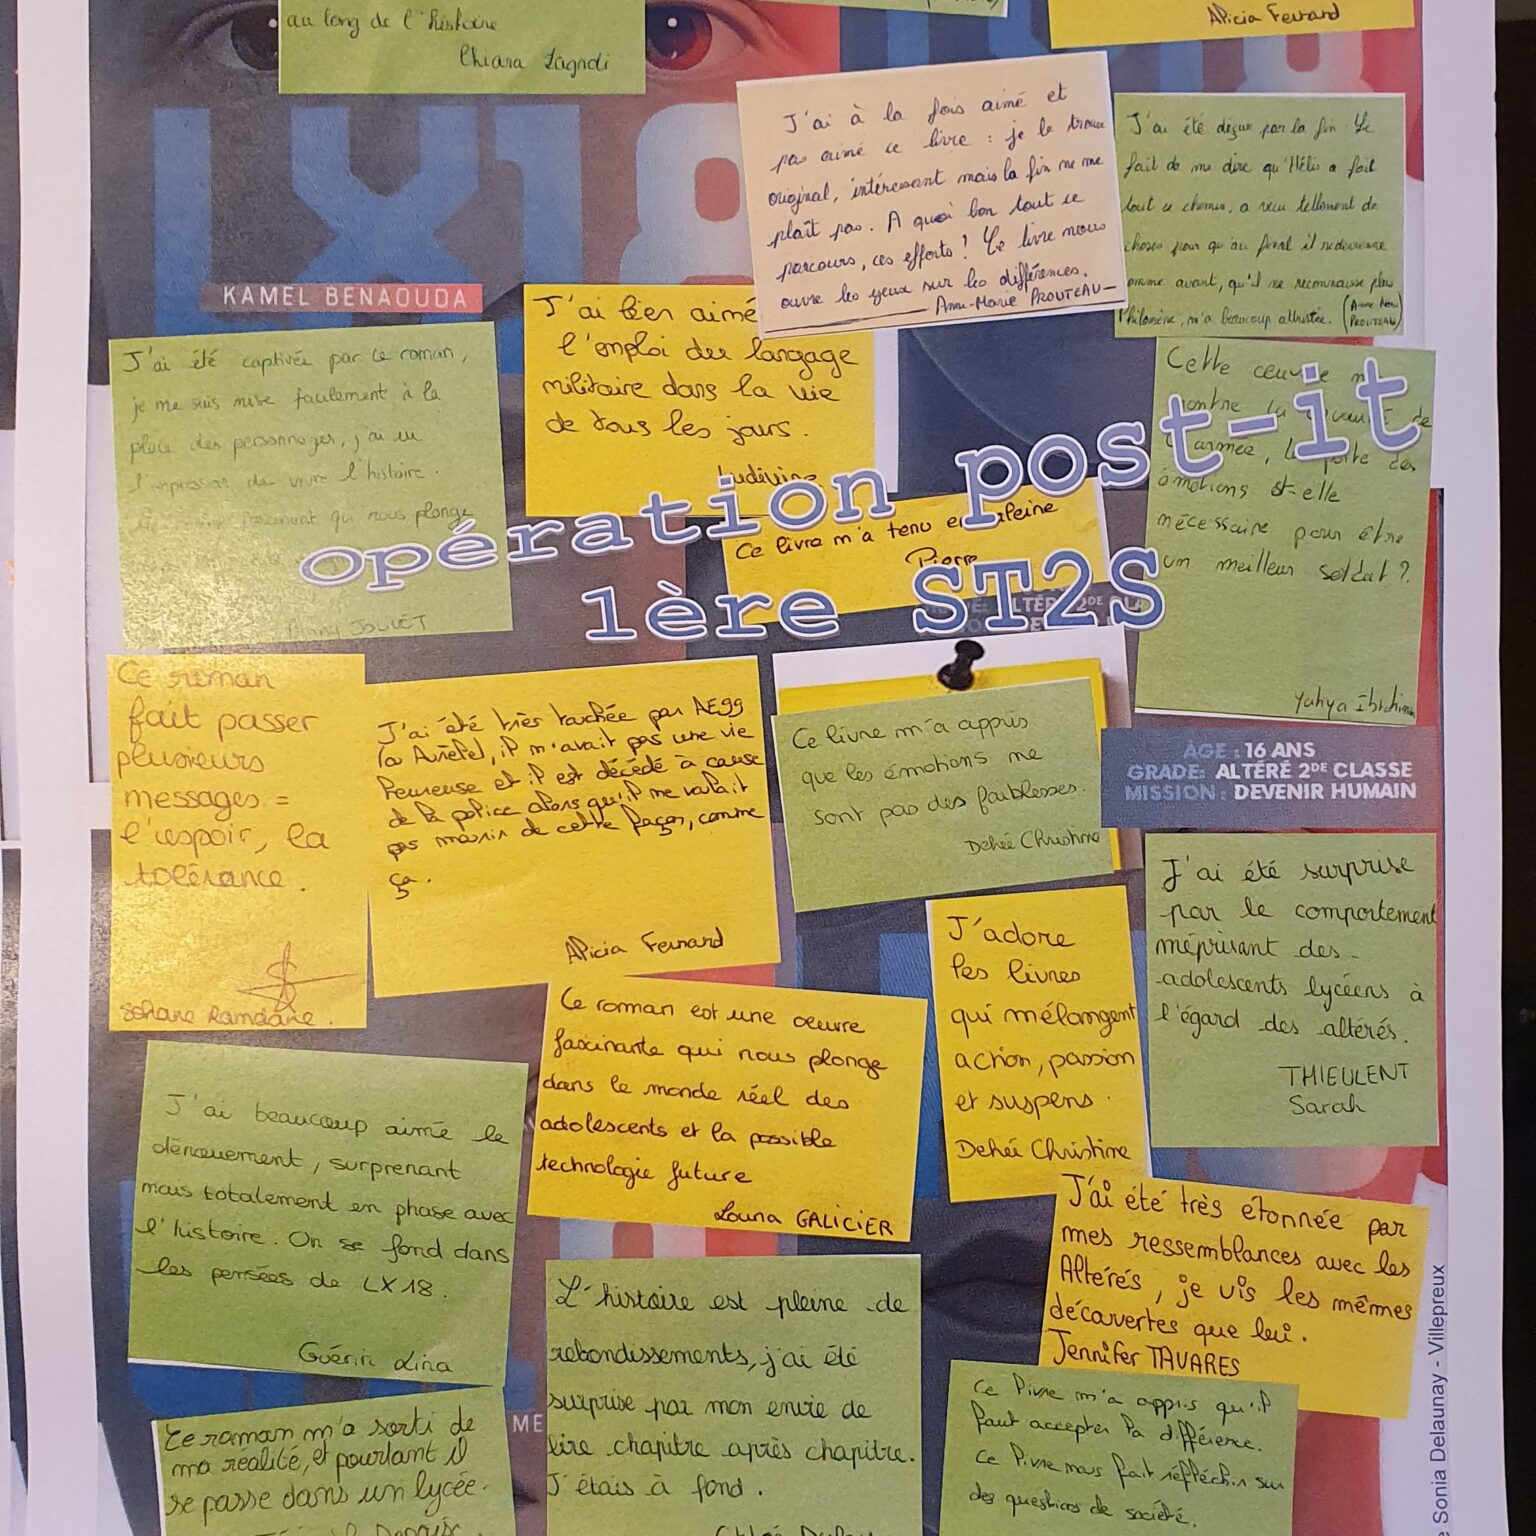 au long de l'histoire
Chiara Lagndi
Alicia Fernand
LX18
KAMEL BENAOUDA
J'ai à la fois aimé et
pas aimé ce livre : je le trouve
original, intéressant mais la fin ne me
plaît pas. A quoi bon tout ce
parcours, ces efforts ! Ce livre nous
ouvre les yeux sur les différences.
Anne-Marie PROUTEAU
J'ai été déçue par la fin Le
fait de me dire qu'Hélis a fait
tout ce chemin, a vécu tellement de
choses pour qu'au final il redevienne
comme avant, qu'il ne reconnaisse plus
Philomène, m'a beaucoup attristée.
PROUTEAU)
J'ai bien aimé
l'emploi du langage
militaire dans la vie
de tous les jours.
Ludivine
J'ai été captivée par ce roman,
je me suis mise facilement à la
place des personnages, j'ai eu
l'impression de vivre l'histoire.
qui nous plonge
JOLIET
Cette oeuvre
montre la
l'armée, la perte des
émotions est-elle
nécessaire pour être
un meilleur soldat ?
Yahya Ibrahim
opération post-it
1ère ST2S
Ce livre m'a tenu en haleine
Pierre
Ce roman
fait passer
plusieurs
messages =
l'espoir, la
tolérance.
Sohane Ramdane.
J'ai été très touchée par AE99
la Auréel, il n'avait pas une vie
heureuse et il est décédé à cause
de la police alors qu'il ne valait
pas mourir de cette façon, comme
ça.
Alicia Fernand
Ce livre m'a appris
que les émotions ne
sont pas des faiblesses.
Dehée Christine
ÂGE : 16 ANS
GRADE: ALTÉRÉ 2DE CLASSE
MISSION : DEVENIR HUMAIN
J'ai été surprise
par le comportement
méprisant des
adolescents lycéens à
l'égard des altérés.
THIEULENT
Sarah
J'adore
les livres
qui mélangent
action, passion
et suspens.
Dehée Christine
Ce roman est une oeuvre
fascinante qui nous plonge
dans le monde réel des
adolescents et la possible
technologie future
Louna GALICIER
J'ai beaucoup aimé le
dénouement, surprenant
mais totalement en phase avec
l'histoire. On se fond dans
les pensées de LX18.
Guérin Lina
J'ai été très étonnée par
mes ressemblances avec les
Altérés, je vis les mêmes
découvertes que lui.
Jennifer TAVARES
L'histoire est pleine de
rebondissements, j'ai été
surprise par mon envie de
lire chapitre après chapitre.
J'étais à fond.
Ce livre m'a appris qu'il
faut accepter la différence.
Ce livre nous fait réfléchir sur
des questions de société.
Ce roman m'a sorti de
ma réalité, et pourtant il
se passe dans un lycée.
ME
Sonia Delaunay - Villepreux